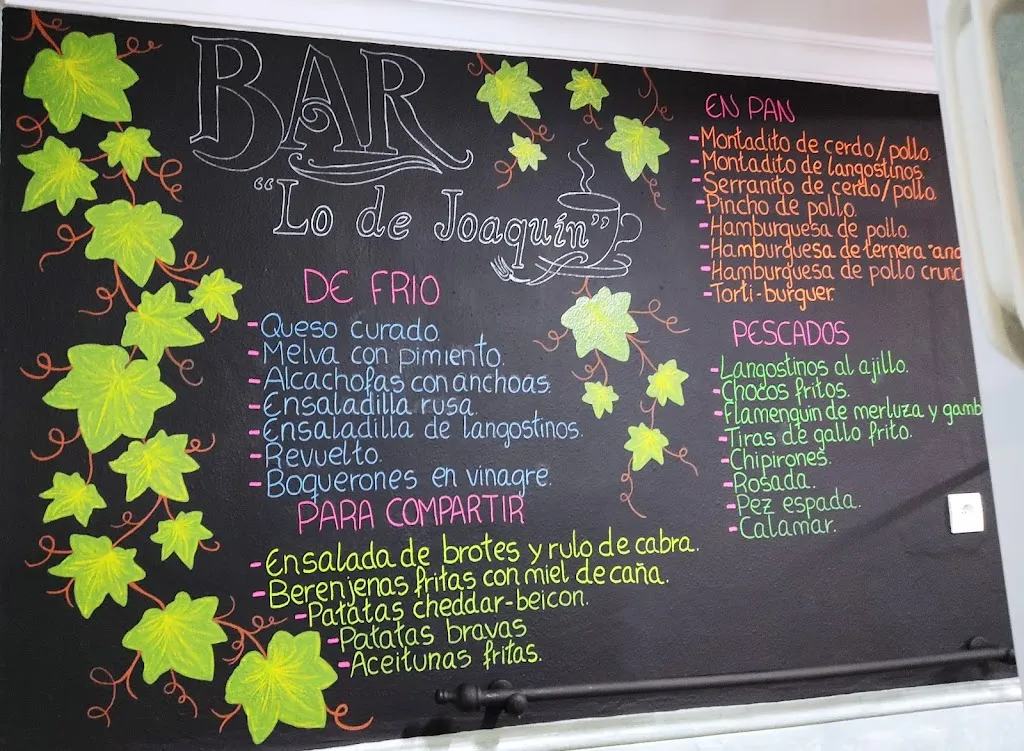 BAR
"Lo de Joaquín"
DE FRIO
-Queso curado.
-Melva con pimiento.
-Alcachofas con anchoas.
-Ensaladilla rusa.
-Ensaladilla de langostinos.
-Revuelto.
-Boquerones en vinagre.
PARA COMPARTIR
-Ensalada de brotes y rulo de cabra.
-Berenjenas fritas con miel de caña.
-Patatas cheddar-beicon.
-Patatas bravas
-Aceitunas fritas.
EN PAN
-Montadito de cerdo/pollo.
-Montadito de langostinos.
-Serranito de cerdo/pollo.
-Pincho de pollo.
-Hamburguesa de pollo.
-Hamburguesa de ternera
-Hamburguesa de pollo
-Torti-burguer.
PESCADOS
-Langostinos al ajillo.
-Chocos fritos.
-Flamenquin de merluza y
-Tiras de gallo frito.
-Chipirones.
-Rosada.
-Pez espada.
-Calamar.